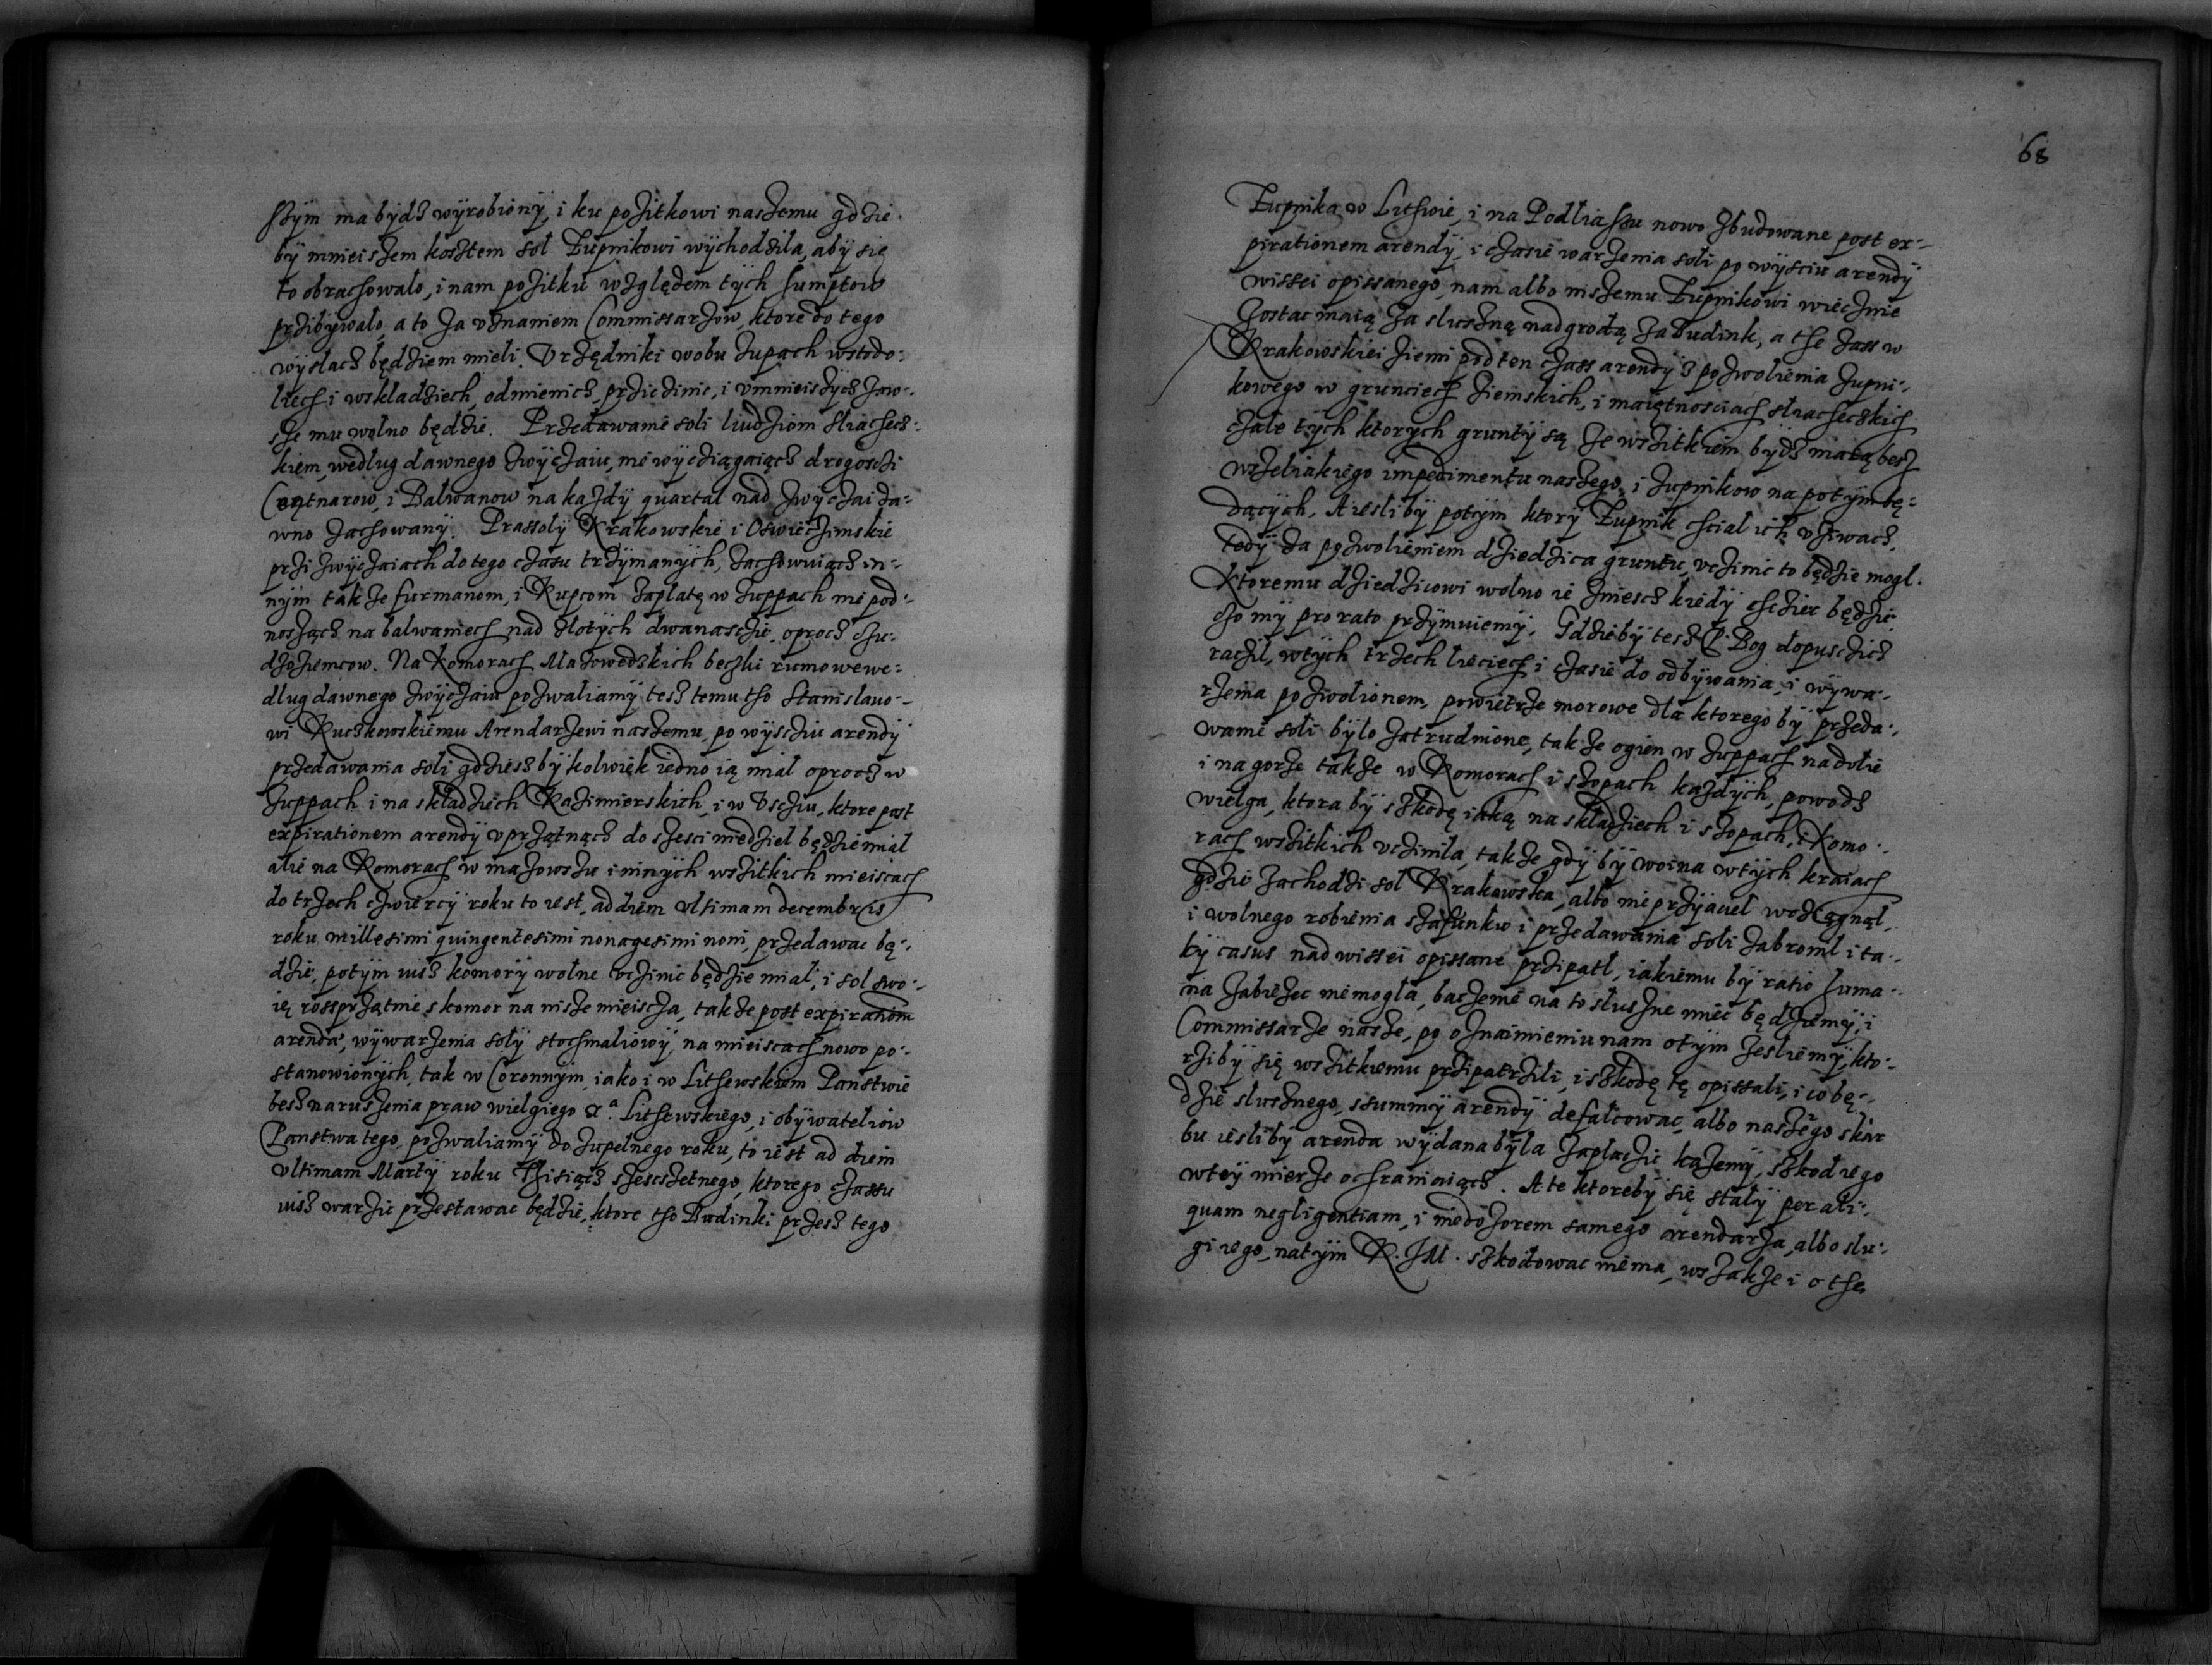 szÿm ma bÿdz wÿrobionÿ, i ku pozitkowi naszemu gdzie
bÿ mnieiszem kosztem sol Zupnikowi wÿchodzila, abÿ się
to obrachowalo, i nam pozitku względem tÿch sumptow
przibÿwalo, a to za vznaniem Commissarzow, ktore do tego
wÿslach będziem mieli. Vrzędniki wobu zupach wstodo-
liech i wskladziech, odmienich, prziczinic, i vmnieiszÿch zaw-
sze mu wolno będzie. Przedawanié soli liudziom sliachecz-
kiem, wedlug dawnego zwÿczaiu, nié wÿcziągaiącz drogosczi
Centnarow, i Balwanow na kazdÿ quartal nad zwÿczai da-
wno zachowanÿ. Prassolÿ Krakowskie i Oswięczimskie
przi zwÿczaiach do tego czasu trzÿmanÿch, zachowuiącz in-
nÿm takze furmanom, i Kupcom zaplatę w zuppach nié pod-
noszącz na balwaniech nad zlotÿch dwanasczie, oprocz cżu-
dzoziemcow. Na Komorach Mazowedzkich beczki rumowe we-
dlug dawnego zwÿczaiu pozwaliamÿ tesz temu tho Stanislawo-
wi Ruczkowskiému Arendarzewi naszemu, po wÿscziu arendÿ
przedawania soli gdziesz bÿ kolwiek iedno ią mial oprocz w
zuppach i na skladziech Kazimierskich, i w Vscziu, ktore post
expirationem arendÿ vprzątnącz do szesci niedziel będzie mial
alié na Komorach w mazowszu i ninÿch wszitkich mieiscach
do trzech czwiercÿ roku to iest, ad diem vltimam decembris
roku millesimi quingentesimi nonagesimi noni, przedawac bę-
dzie, potÿm iusz komorÿ wolne vczinic będzie mial, i sol swo-
ię rosprzątnie s komor na insze mieiscza, takze post expirationem
arendæ, wÿwarzenia solÿ stochmaliowÿ, na mieiscach nowo po-
stanowionÿch, tak w Coronnÿm, iako i w Lithewskiém Panstwié
besz naruszenia praw wielgiego X.a Lithewskiégo, i obÿwateliow
Panstwa tego, pozwaliamÿ do zupelnego roku, to iést ad diem
vltimam Martÿ roku Thisiącz szesczsetnego, ktorego czassu
iusz warzic przestawac będzié, ktore tho Budinki przesz tego
68
Zupnika w Lithwié, i na Podliaszu nowo zbudowane post ex-
pirationem arendÿ, i czasié warzenia soli po wÿsciu arendÿ
wissei opissanego, nam albo inszemu Zupnikowi wiecznie
zostac maią za slusżną nadgrodą za Budink, a the zass w
Krakowskiei ziemi pod ten czass arendÿ z pozwolienia zupni-
kowego w grunciech ziemskich, i maiętnosciach sliacheczkich
czale tÿch ktorych gruntÿ są ze wszitkiém bÿdz maią besz
wszeliakiégo impedimentu naszego, i zupnikow na potÿm bę-
dącÿch. A iesli bÿ potÿm ktorÿ Zupnik chcial ich vziwacz,
tedÿ za pozwolieniem dziedzica gruntu, vczinic to będzie mogl.
Ktoremu dziedzicowi wolno ié zniescz kiédÿ chcziec będzié
czo mÿ pro rato przÿmuiemÿ. Gdziebÿ tesz P. Bog dopuscicz
raczil, wtÿch trzech lieciech i czasié do odbÿwania, i wÿwa-
rzenia pozwolionem, powietrze morowe dla ktorego bÿ przeda-
wanié soli bÿlo zatrudnione, takze ogien w zuppach na dolie
i na gorze takze w Komorach i szopach kazdÿch, powodz
wielga, ktora bÿ szkodę iaką na skladziech i szopach, i Komo-
rach wszitkich vczinila, takze gdÿ bÿ woina wtÿch kraiach
gdzie zachodzi sol Krakowska, albo nieprzÿaciel wcziągnąl,
i wolnego robiénia szafunku i przedawania soli zabronil i ta-
kÿ casus nad wissei opissane przipadl, iakiému bÿ ratio huma-
na zabiézec nié mogla, baczenié na to slusżne miéc będziemÿ, i
Commissarze nasze, po oznaimieniu nam otÿm zesliémÿ, kto-
rzi bÿ się wszitkiemu przipatrzili, i szkodę tę opissali, i co bę-
dzié slusznego, s summÿ arendÿ defalcowac, albo naszego skar
bu iésli bÿ arenda wÿdana bÿla zaplaczic kazemÿ, szkod iego
wtéÿ mierze ochraniaiącz. A te ktorebÿ się stalÿ per ali-
quam negligentiam, i niédozorem samego arendarza, albo slu-
gi iego, natÿm K. JM. szkodowac niéma, wszakze i o the